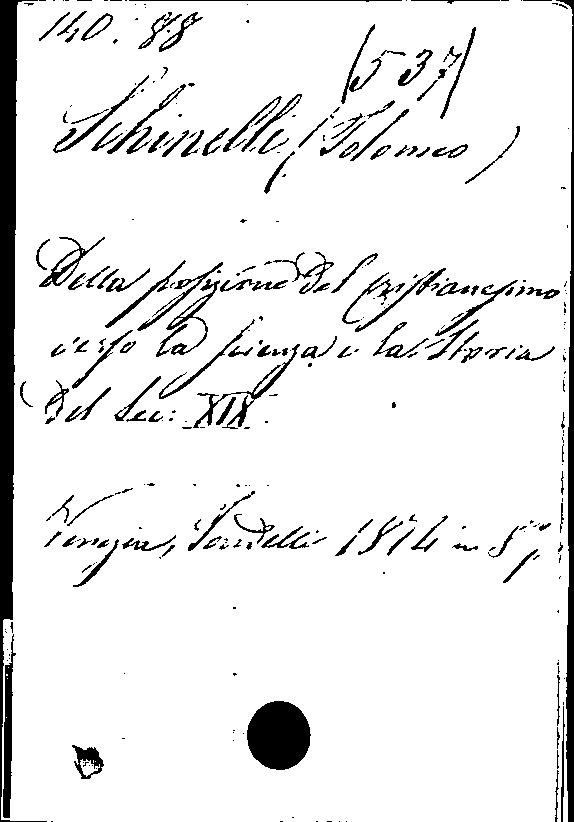 140. 88
(537)
Schinelli (Tolomeo)
Della posizione del cristianesimo
verso la scienza e la Storia
del sec: XIX.
Venezia, 1874 in 8°,